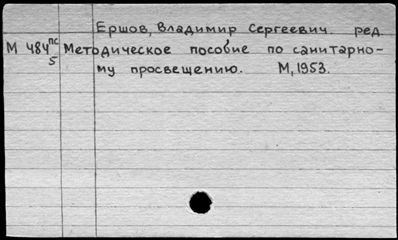 Ершов, Владимир Сергеевич. ред.
М 484 пс/5 Методическое пособие по санитарно-
му просвещению. М, 1953.